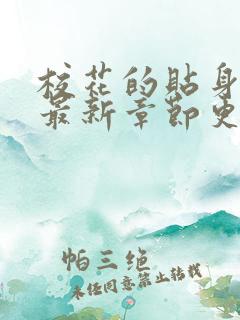 校花的贴身
最新章节史
帕三绝
未经同意禁止转载